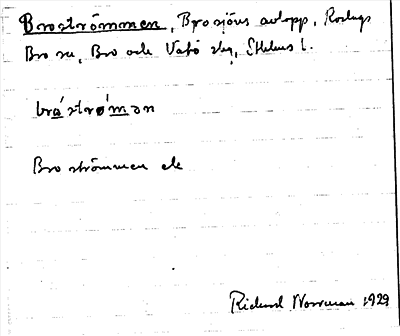 Broströmmen, Brosjöns avlopp, Roslags
Bro sn, Bro och Vätö skg, Sthlms l.
bråströ́mən
Broströmmen ek
Rickard Norrman 1929